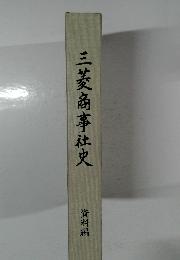 三菱商事社史
資料編